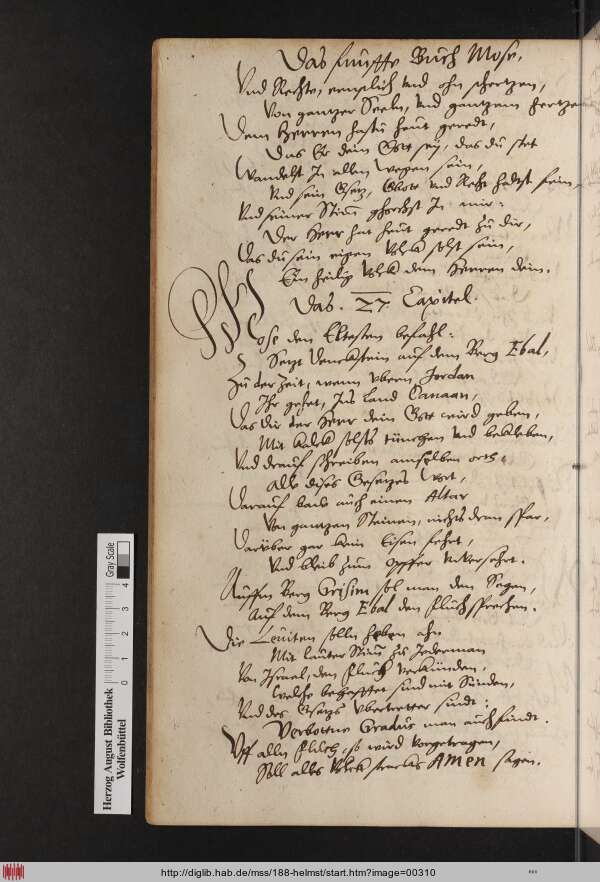 Das fünffte Buch Mose.
Vnd Rechte, ernstlich vnd ohn schertzen,
Von gantzer Seeln, vnd gantzem hertzen
Dem Herren hastu heut geredt,
Das Er dein Gott sey, das du stet
Wandelst In allen Wegen sein,
Vnd sein Gsetz, Gbott vnd Recht haltst fein,
Vnd seiner Stimm ghorchst In mir:
Der Herr hat heut geredt zu dir,
Das du sein eigen Volck solst sein,
Ein heilig Volck dem Herren dein.
Das . 27. Capitel.
Mose den Eltesten befahl:
Setzt Denckstein auf dem Berg Ebal,
Zu der Zeit, wenn vbern Jordan
Ihr gehet, Ins land Canaan,
Das dir der Herr dein Gott wird geben,
Mit kalck solsts tünchen vnd bekleben,
Vnd drauf schreiben amselben orth
Alle dises Gesetzes Wort,
Darauf baw auch einen Altar
Von gantzen Steinen, nichts dran spar,
Darüber gar kein Eisen fehrt,
Vnd bleib zum opffer vnversehrt.
Auffm Berg Grisim sol man den Segen,
Auf dem Berg Ebal den fluch sprechen.
Die Leuiten solln heben ahn
Mit lauter Stimm zu Jederman
Von Israel, den fluch verkünden,
Welche behafftet sind mit Sünden,
Vnd des Gsetzs vbertretter sindt:
Verbottne Gradus man auch findt.
Vff alln fluch, so wird vorgetragen,
Soll alles Volck Amen sagen.
Herzog August Bibliothek
Wolfenbüttel
0 1 2 3 4
Gray Scale
http://diglib.hab.de/mss/188-helmst/start.htm?image=00310